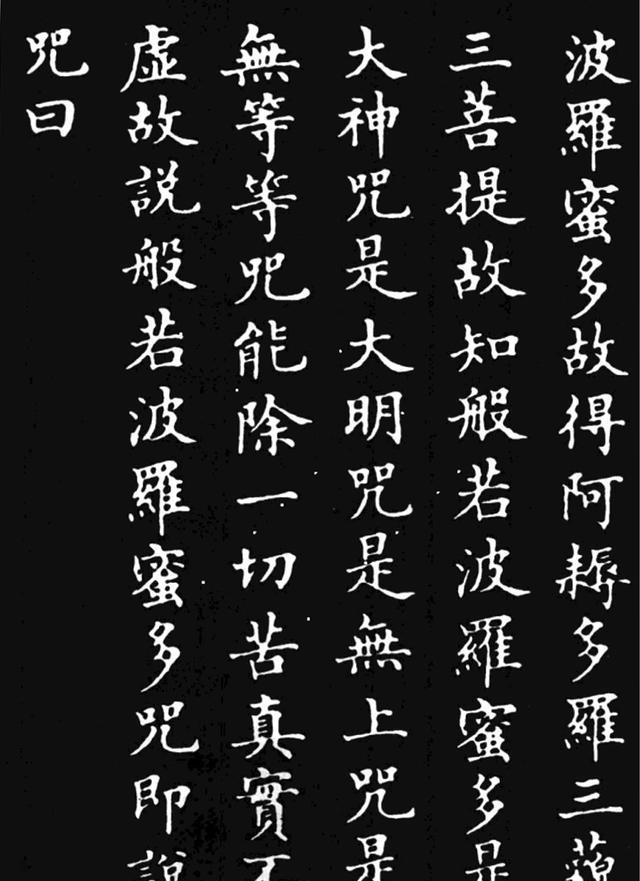 波羅蜜多故得阿耨多羅三藐
三菩提故知般若波羅蜜多是
大神咒是大明咒是無上咒是
無等等咒能除一切苦真實不
虛故說般若波羅蜜多咒即說
咒曰